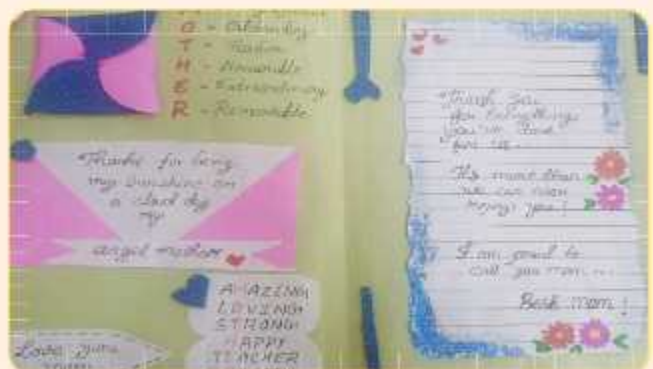 O - Outstanding
T - 
H - Honourable
E - Extraordinary
R - Remarkable
"Thanks for being
my sunshine on
a cloudy day
my
angel mother
AMAZING
LOVING
STRONG
HAPPY
TEACHER
Love you
mom
"Thank you
for Everything
you've done
for us.
It's more than
we can ever
repay you!
I am proud to
call you mom...
Best Mom!